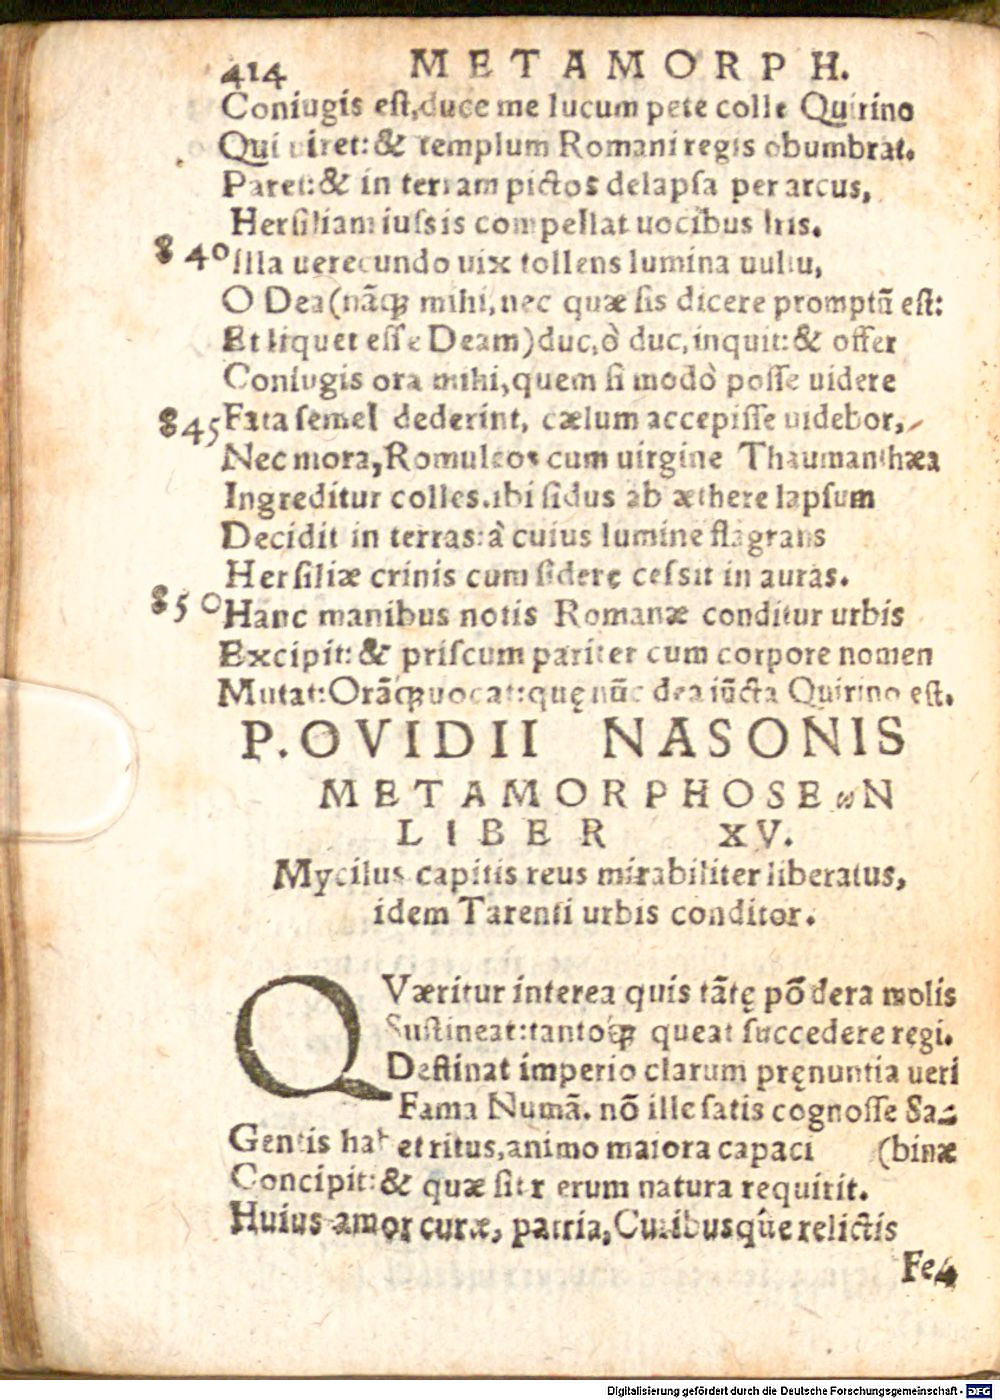 414 METAMORPH.
Coniugis est, duce me lucum pete colle Quirino
Qui uiret: & templum Romani regis obumbrat.
Paret: & in terram pictos delapsa per arcus,
Hersiliam iussis compellat uocibus Iris.
840 Illa uerecundo uix tollens lumina uultu,
O Dea (nãq; mihi, nec quæ sis dicere promptũ est:
Et liquet esse Deam) duc, ò duc, inquit: & offer
Coniugis ora mihi, quem si modò posse uidere
845 Fata semel dederint, cælum accepisse uidebor,
Nec mora, Romuleos cum uirgine Thaumanthæa
Ingreditur colles. ibi sidus ab æthere lapsum
Decidit in terras: à cuius lumine flagrans
Hersiliæ crinis cum sidere cessit in auras.
850 Hanc manibus notis Romanæ conditur urbis
Excipit: & priscum pariter cum corpore nomen
Mutat: Orãq; uocat: quę nũc dea iũcta Quirino est.
P. OVIDII NASONIS
METAMORPHOSEωN
LIBER XV.
Mycilus capitis reus mirabiliter liberatus,
idem Tarenti urbis conditor.
QVæritur interea quis tãtę põdera molis
Sustineat: tantoq́; queat succedere regi.
Destinat imperio clarum pręnuntia ueri
Fama Numã. nõ ille satis cognosse Sa-
Gentis habet ritus, animo maiora capaci (binæ
Concipit: & quæ sit rerum natura requirit.
Huius amor curæ, patria, Curibusq̂ue relictis
Fe-
Digitalisierung gefördert durch die Deutsche Forschungsgemeinschaft - DFG